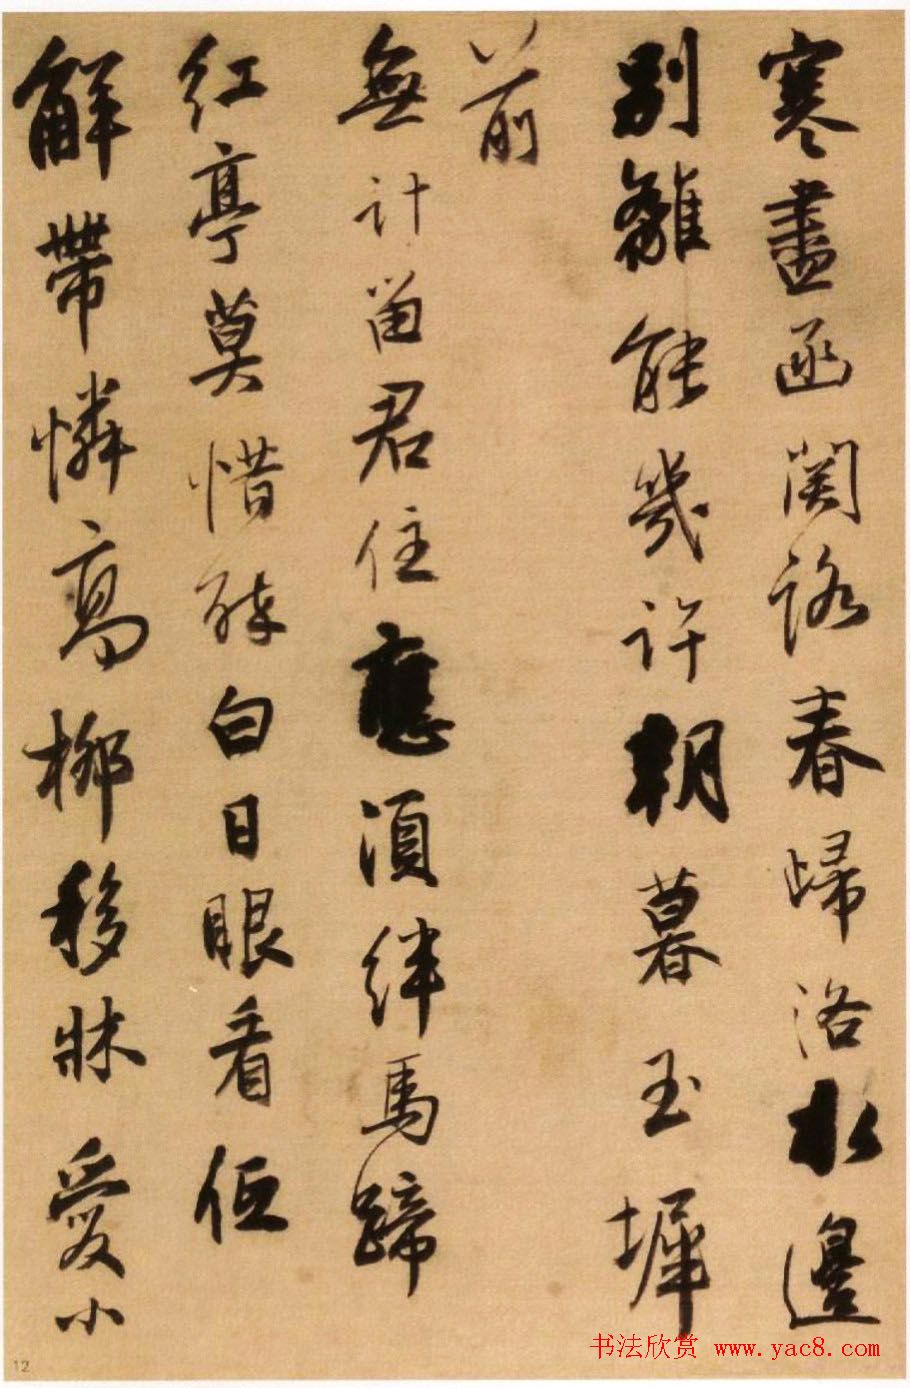 寒盡函關路春歸洛水邊
別離能幾許朝暮玉墀
前
無計留君住應須絆馬蹄
紅亭莫惜醉白日眼看低
解帶憐高柳移牀愛小
书法欣赏 www.yac8.com
12